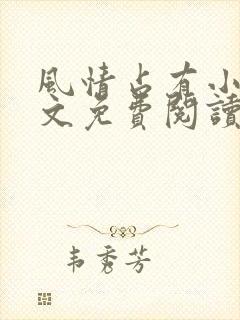 風情占有小
文免費閱讀
韦秀芳